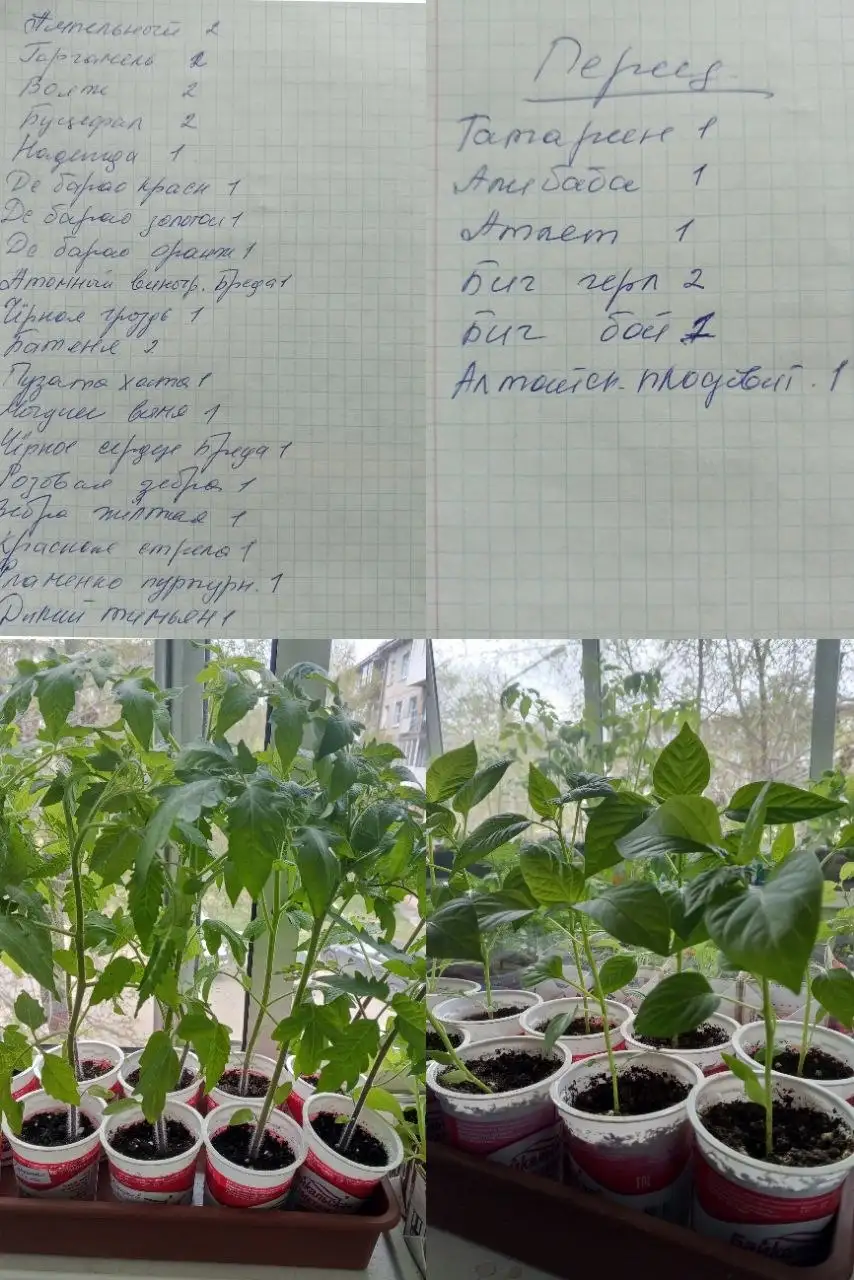 Гаргамель 2
Вояж 2
Буцефал 2
Надежда 1
Де барао красн 1
Де барао золотой 1
Де барао оранж 1
Атомный виногр. Бреда 1
Чёрная гроздь 1
Батяня 2
Пузата хата 1
1
Чёрное сердце Бреда 1
Розовая зебра 1
Зебра жёлтая 1
Красная стрела 1
Фламенко пурпурн. 1
Дикий тимьян 1
Перец
Татарин 1
Алибаба 1
Атлет 1
Биг герл 2
Биг бой 1
Алтайск. плодовит. 1